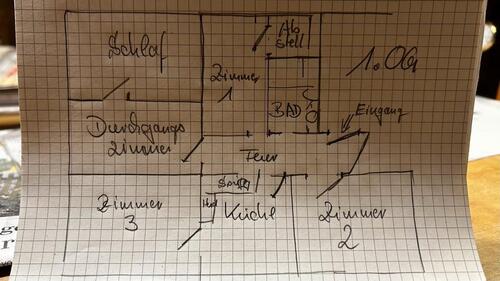 Schlaf
Ab
stell
1.OG
Zimmer
1
BAD
Eingang
Durchgangs
zimmer
Feier
Zimmer
3
Küche
Zimmer
2